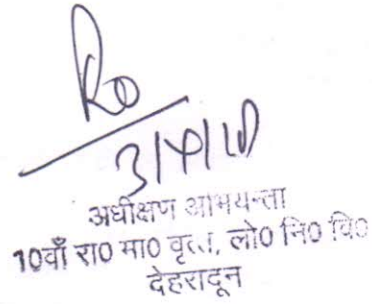 अधीक्षण अभियन्ता
10वाँ रा0 मा0 वृत्त, लो0 नि0 वि0
देहरादून